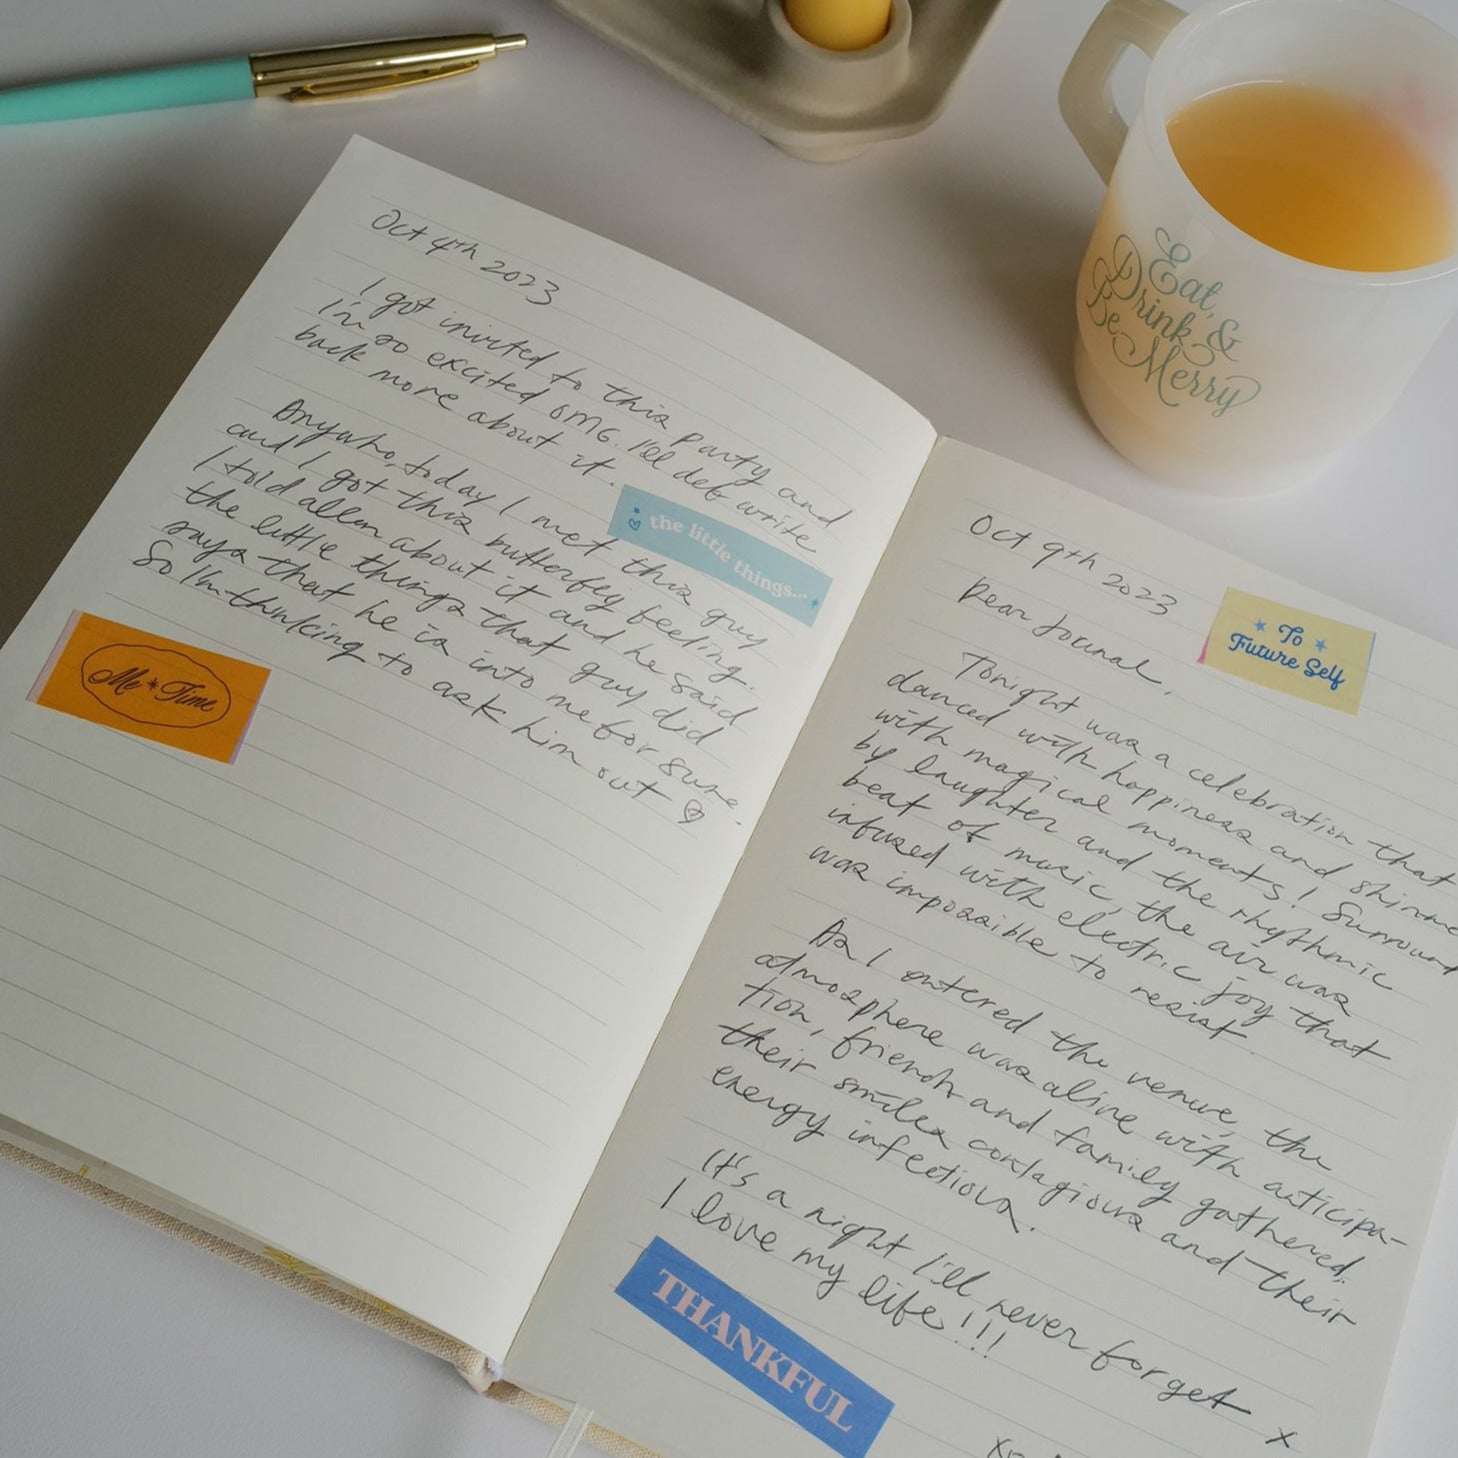 Oct 4th 2023
I got invited to this party and
I'm so excited OMG. I'll def write
back more about it.
Anywho, today I met this guy
and I got this butterfly feeling.
I told allen about it and he said
the little things that guy did
says that he is into me for sure.
So I'm thinking to ask him out
the little things...
Me * Time
Oct 9th 2023
Dear Journal,
To
Future Self
Tonight was a celebration that
danced with happiness and shimme
with magical moments! Surround
by laughter and the rhythmic
beat of music, the air was
infused with electric joy that
was impossible to resist.
As I entered the venue, the
atmosphere was alive with anticipa-
tion, friends and family gathered,
their smiles contagious and their
energy infectious.
It's a night I'll never forget x
I love my life!!!
THANKFUL
Eat,
Drink, &
Be
Merry